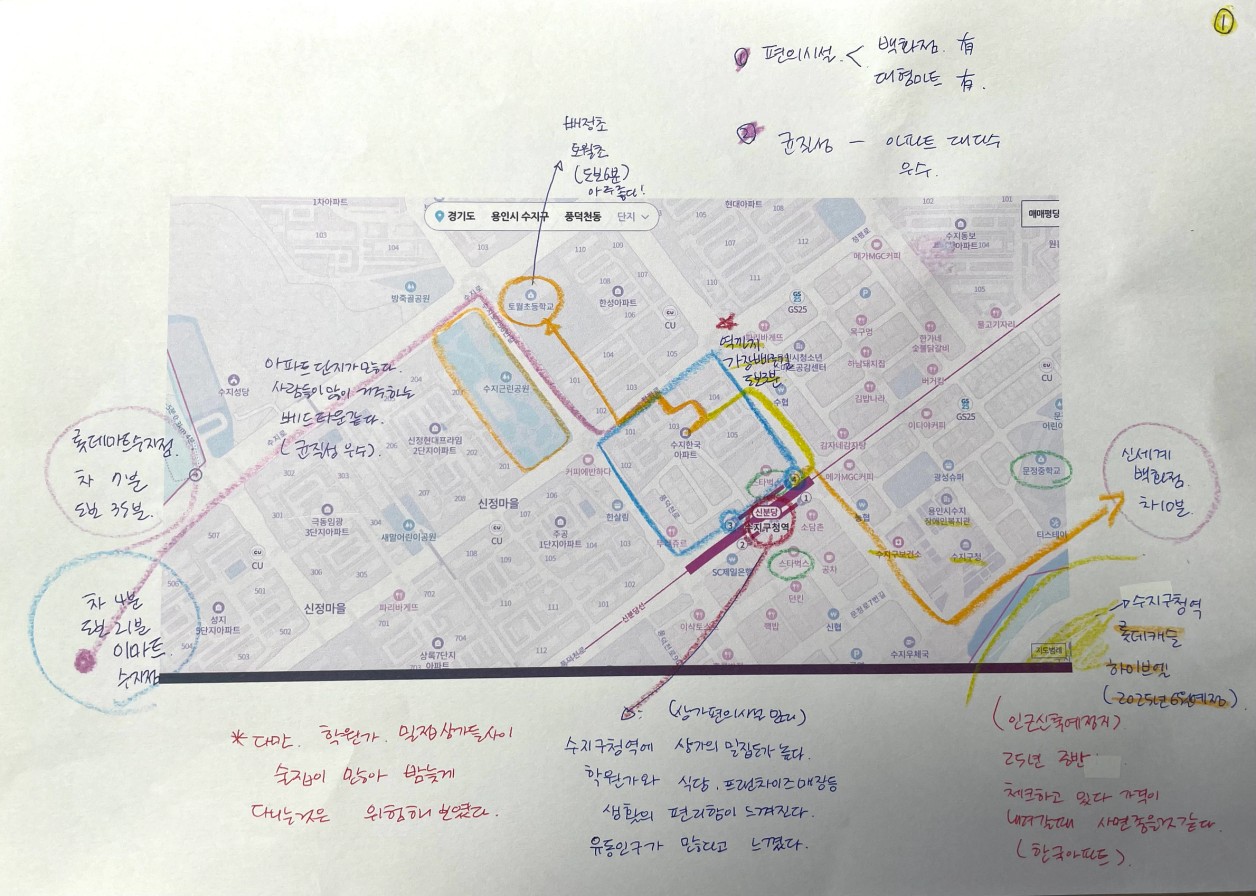 ①
① 편의시설 < 백화점 有
대형마트 有.
② 균질성 - 아파트 대다수
우수.
배정초
토월초
(도보6분)
아주좋다!
경기도 용인시 수지구 풍덕천동 단지
매매평당
1차아파트
현대아파트
수지동보
아파트
메가MGC커피
방죽골공원
토월초등학교
한성아파트
CU
GS25
파리바게뜨
옥구멍
한가네
숯불닭갈비
물고기자리
하남돼지집
버거킹
김밥나라
이디야커피
GS25
CU
수협
역까지
가장빠른길
도보3분
수지성당
수지로
아파트 단지가많다.
사람들이 많이 거주하는
베드타운같다.
(균질성 우수).
수지근린공원
신정현대프라임
2단지아파트
커피에반하다
수지한국
아파트
감자네감자탕
메가MGC커피
스타벅스
광성슈퍼
문정중학교
롯데마트수지점
차 7분
도보 35분.
신세계
백화점
차10분.
극동임광
3단지아파트
새말어린이공원
신정마을
CU
주공
1단지아파트
한살림
뚜레쥬르
풍덕천로
신분당
수지구청역
소담촌
농협
용인시수지
장애인복지관
수지구보건소
수지구청
티스테이
SC제일은행
스타벅스
공차
던킨
CU
차 4분
도보 21분
이마트.
수지점
성지
5단지아파트
신정마을
파리바게뜨
상록7단지
아파트
신분당선
이삭토스트
맥밥
신협
문정로7번길
수지우체국
지도범례
→수지구청역
롯데캐슬
하이브엘
(2025년 6월예정).
* 다만. 학원가. 밀집상가들사이
술집이 많아 밤늦게
다니는것은 위험해 보였다.
(상가편의시설 많다)
수지구청역에 상가의 밀집도가 높다.
학원가와 식당, 프랜차이즈매장등
생활의 편리함이 느껴진다.
유동인구가 많다고 느꼈다.
(인근신축예정지)
25년 중반.
체크하고 있다 가격이
내려갈때 사면좋을것같다.
(한국아파트).